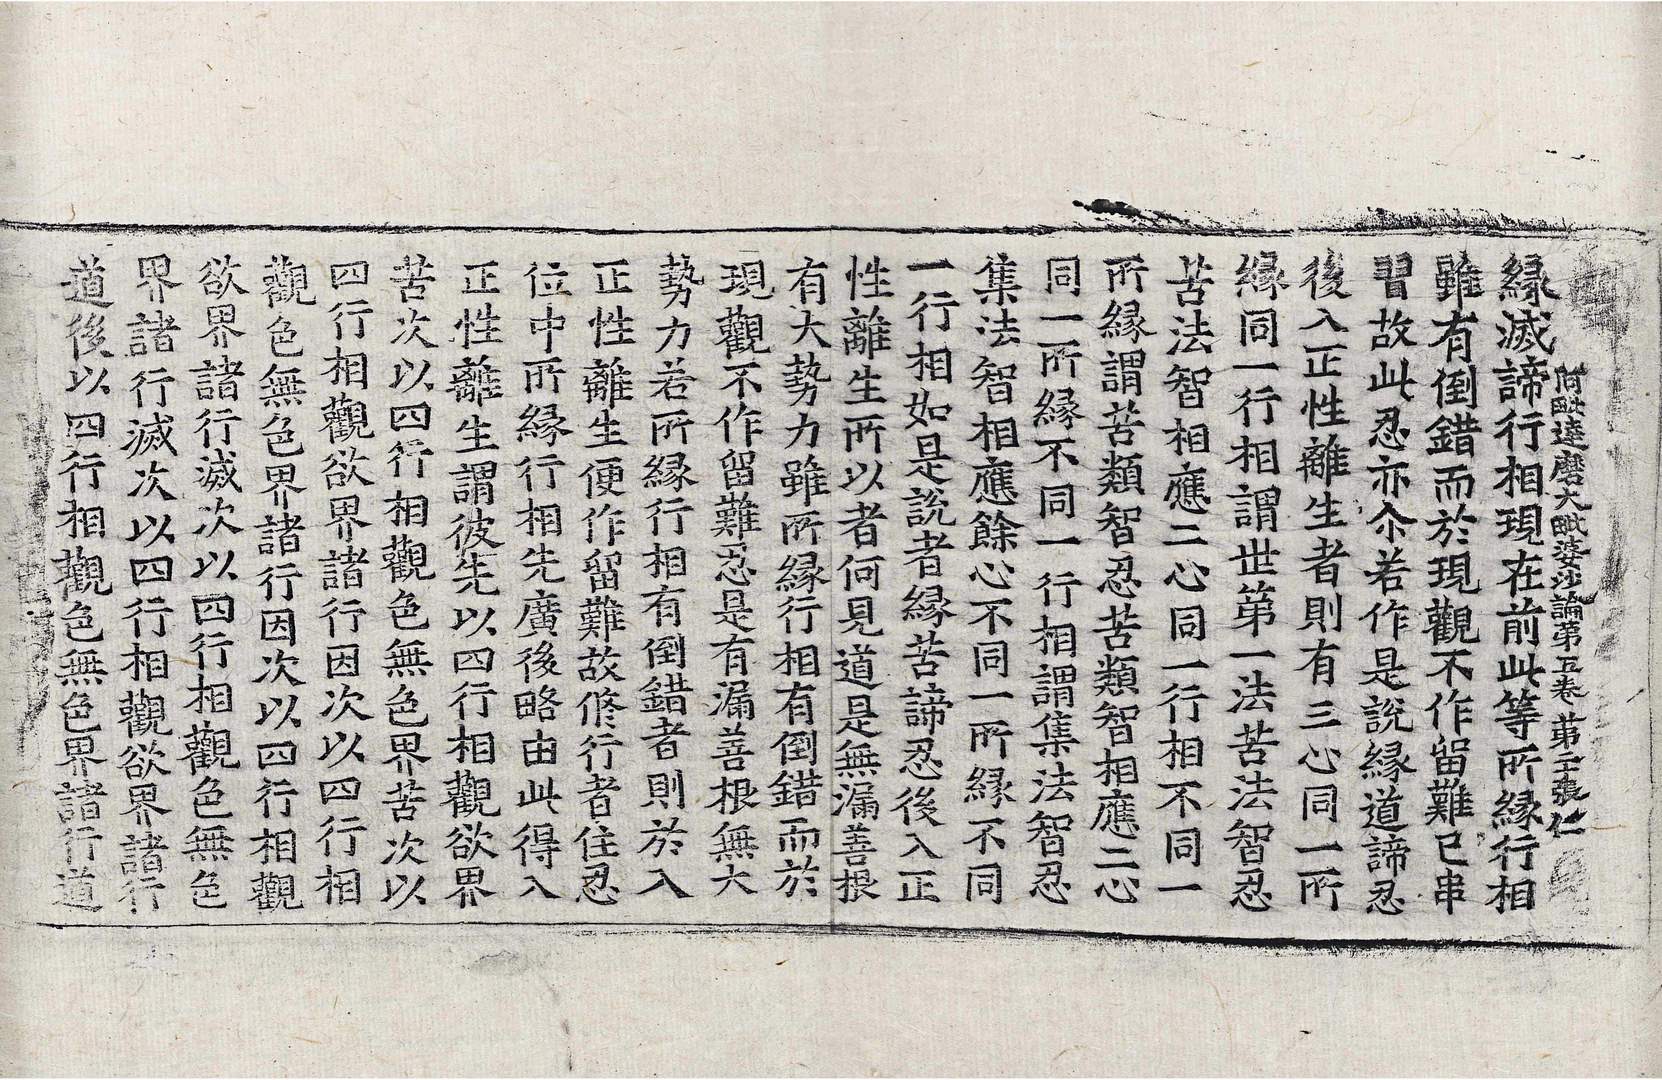 阿毗達磨大毗婆沙論第五卷 第三張 仁
縁滅諦行相現在前此等所縁行相
雖有倒錯而於現觀不作留難已串
習故此忍亦尒若作是說縁道諦忍
後入正性離生者則有三心同一所
縁同一行相謂世第一法苦法智忍
苦法智相應三心同一行相不同一
所縁謂苦類智忍苦類智相應二心
同一所縁不同一行相謂集法智忍
集法智相應餘心不同一所縁不同
一行相如是說者縁苦諦忍後入正
性離生所以者何見道是無漏善根
有大勢力雖所縁行相有倒錯而於
現觀不作留難忍是有漏善根無大
勢力若所縁行相有倒錯者則於入
正性離生便作留難故修行者住忍
位中所縁行相先廣後略由此得入
正性離生謂彼先以四行相觀欲界
苦次以四行相觀色無色界苦次以
四行相觀欲界諸行因次以四行相
觀色無色界諸行因次以四行相觀
欲界諸行滅次以四行相觀色無色
界諸行滅次以四行相觀欲界諸行
道後以四行相觀色無色界諸行道